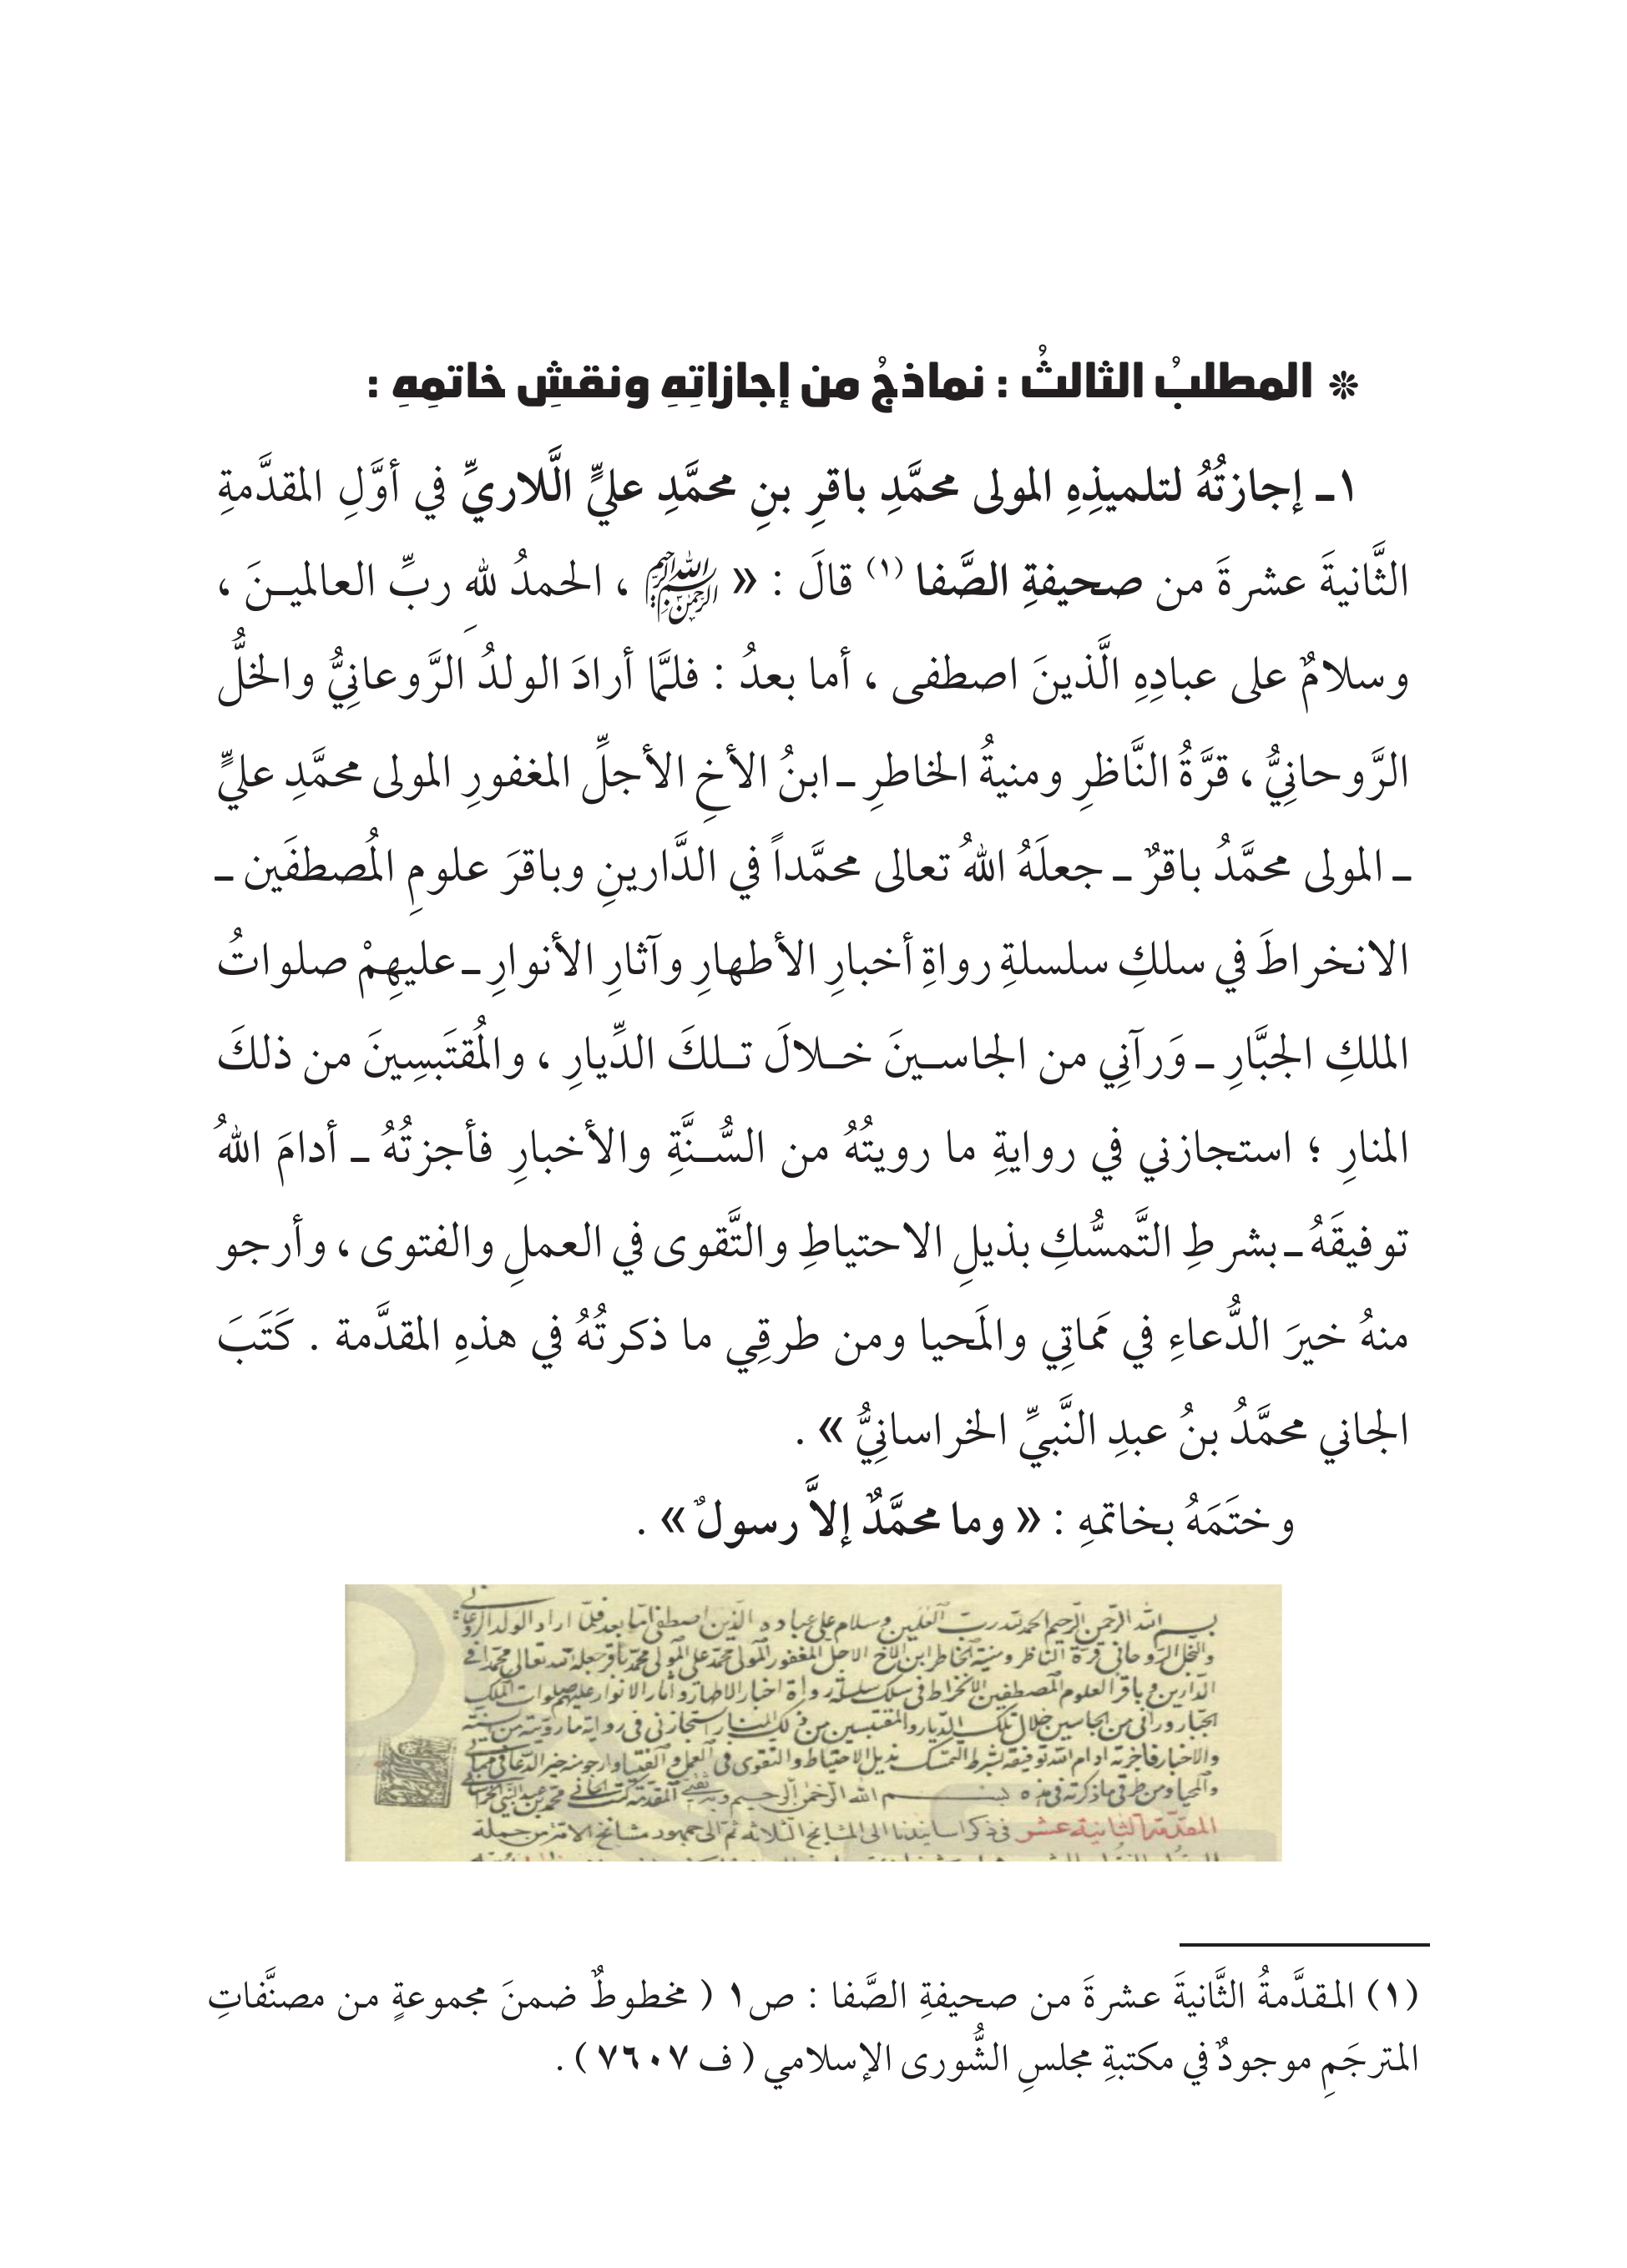 ❊ المطلبُ الثالثُ : نماذجُ من إجازاتِهِ ونقشِ خاتمِهِ :
١ـ إجازتُهُ لتلميذِهِ المولى محمَّدِ باقرِ بنِ محمَّدِ عليٍّ الَّلاريِّ في أوَّلِ المقدَّمةِ
الثَّانيةَ عشرةَ من صحيفةِ الصَّفا (١) قالَ : « ﷽ ، الحمدُ للهِ ربِّ العالميـنَ ،
وسلامٌ على عبادِهِ الَّذينَ اصطفى ، أما بعدُ : فلمَّا أرادَ الولدُ الرَّوعانِيُّ والخلُّ
الرَّوحانِيُّ ، قرَّةُ النَّاظرِ ومنيةُ الخاطرِ ـ ابنُ الأخِ الأجلِّ المغفورِ المولى محمَّدِ عليٍّ
ـ المولى محمَّدُ باقرٌ ـ جعلَهُ اللهُ تعالى محمَّداً في الدَّارينِ وباقرَ علومِ المُصطفَين ـ
الانخراطَ في سلكِ سلسلةِ رواةِ أخبارِ الأطهارِ وآثارِ الأنوارِ ـ عليهِمْ صلواتُ
الملكِ الجبَّارِ ـ وَرآنِي من الجاسـينَ خـلالَ تـلكَ الدِّيارِ ، والمُقتَبسِينَ من ذلكَ
المنارِ ؛ استجازني في روايةِ ما رويتُهُ من السُّـنَّةِ والأخبارِ فأجزتُهُ ـ أدامَ اللهُ
توفيقَهُ ـ بشرطِ التَّمسُّكِ بذيلِ الاحتياطِ والتَّقوى في العملِ والفتوى ، وأرجو
منهُ خيرَ الدُّعاءِ في مَماتِي والمَحيا ومن طرقِي ما ذكرتُهُ في هذهِ المقدَّمة . كَتَبَ
الجاني محمَّدُ بنُ عبدِ النَّبيِّ الخراسانِيُّ » .
وختَمَهُ بخاتمهِ : « وما محمَّدٌ إلاَّ رسولٌ » .
بسم الله الرحمن الرحيم الحمد لله رب العلمين وسلام على عباده الذين اصطفى اما بعد فلما اراد الولد الروعاني
والخل الروحاني قرة الناظر ومنية الخاطر ابن الاخ الاجل المغفور المولى محمد علي المولى محمد باقر جعله الله تعالى محمدا في
الدارين وباقر العلوم المصطفين الانخراط في سلك سلسلة رواة اخبار الاطهار واثار الانوار عليهم صلوات الملك
الجبار وراني من الجاسين خلال تلك الديار والمقتبسين من ذلك المنار استجازني في رواية ما رويته من سنة
والاخبار فاجزته ادام الله توفيقه بشرط التمسك بذيل الاحتياط والتقوى في العمل والفتيا وارجو منه خير الدعا في مماتي
والمحيا ومن طرقي ما ذكرته في هذه بسم الله الرحمن الرحيم وبه المقدمة كتب الجاني محمد بن عبد النبي الخراساني
المقدمة الثانية عشر في ذكر اسانيدنا الى المشايخ الثلاثة ثم الى جمهور مشايخ من جملة
(١) المقدَّمةُ الثَّانيةَ عشرةَ من صحيفةِ الصَّفا : ص١ ( مخطوطٌ ضمنَ مجموعةٍ من مصنَّفاتِ
المترجَمِ موجودٌ في مكتبةِ مجلسِ الشُّورى الإسلامي ( ف ٧٦٠٧ ) .